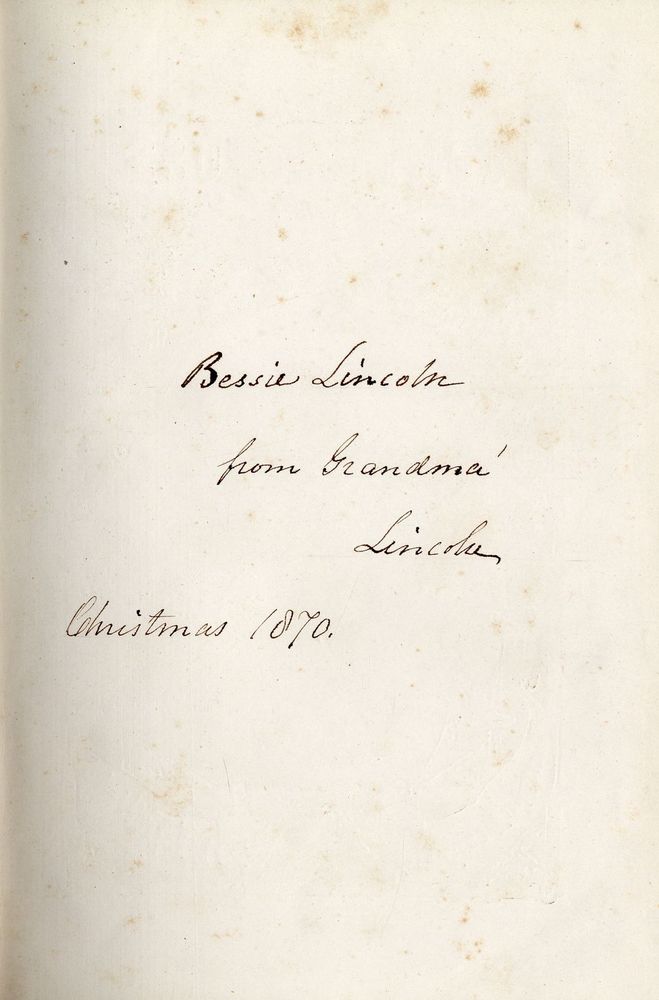 Bessie Lincoln
from Grandma'
Lincoln
Christmas 1870.